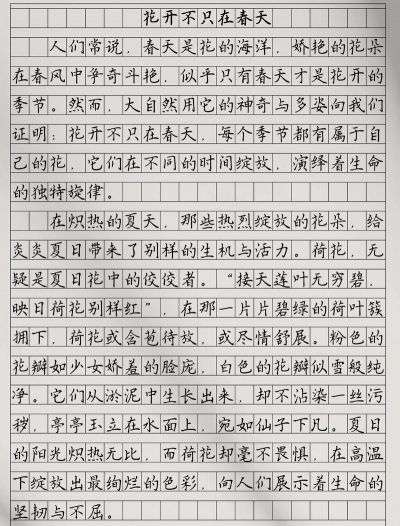 花开不只在春天
人们常说，春天是花的海洋，娇艳的花朵
在春风中争奇斗艳，似乎只有春天才是花开的
季节。然而，大自然用它的神奇与多姿向我们
证明：花开不只在春天，每个季节都有属于自
己的花，它们在不同的时间绽放，演绎着生命
的独特旋律。
在炽热的夏天，那些热烈绽放的花朵，给
炎炎夏日带来了别样的生机与活力。荷花，无
疑是夏日花中的佼佼者。“接天莲叶无穷碧，
映日荷花别样红”，在那一片片碧绿的荷叶簇
拥下，荷花或含苞待放，或尽情舒展。粉色的
花瓣如少女娇羞的脸庞，白色的花瓣似雪般纯
净。它们从淤泥中生长出来，却不沾染一丝污
秽，亭亭玉立在水面上，宛如仙子下凡。夏日
的阳光炽热无比，而荷花却毫不畏惧，在高温
下绽放出最绚烂的色彩，向人们展示着生命的
坚韧与不屈。